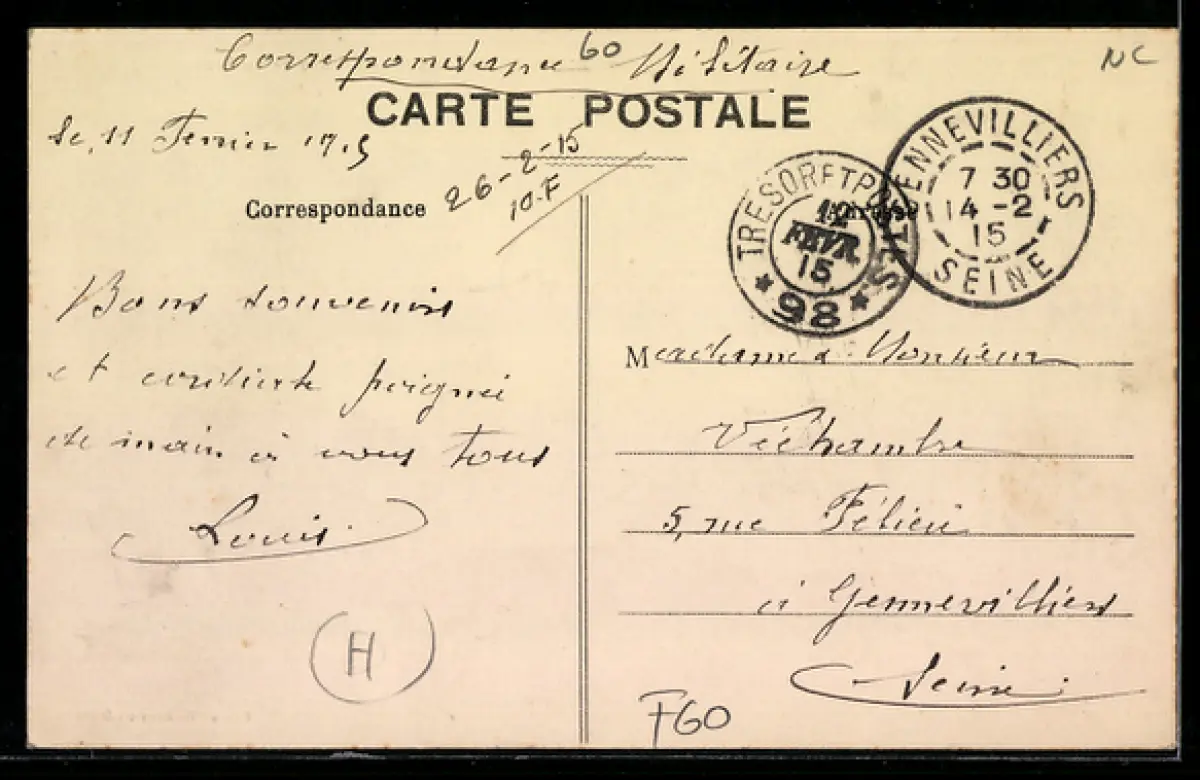 60
Correspondance Militaire
NC
CARTE POSTALE
Le, 11 Fevrier 1915
26-2-15
10.F
Correspondance
Adresse
TRESOR ET POSTES
12
FEVR
15
* 98 *
GENNEVILLIERS
7 30
14 -2
15
SEINE
Bons souvenirs
et cordiale poignée
de main à vous tous
Louis
H
Madame & Monsieur
Véchambre
5, rue Félicie
à Gennevilliers
Seine
F60